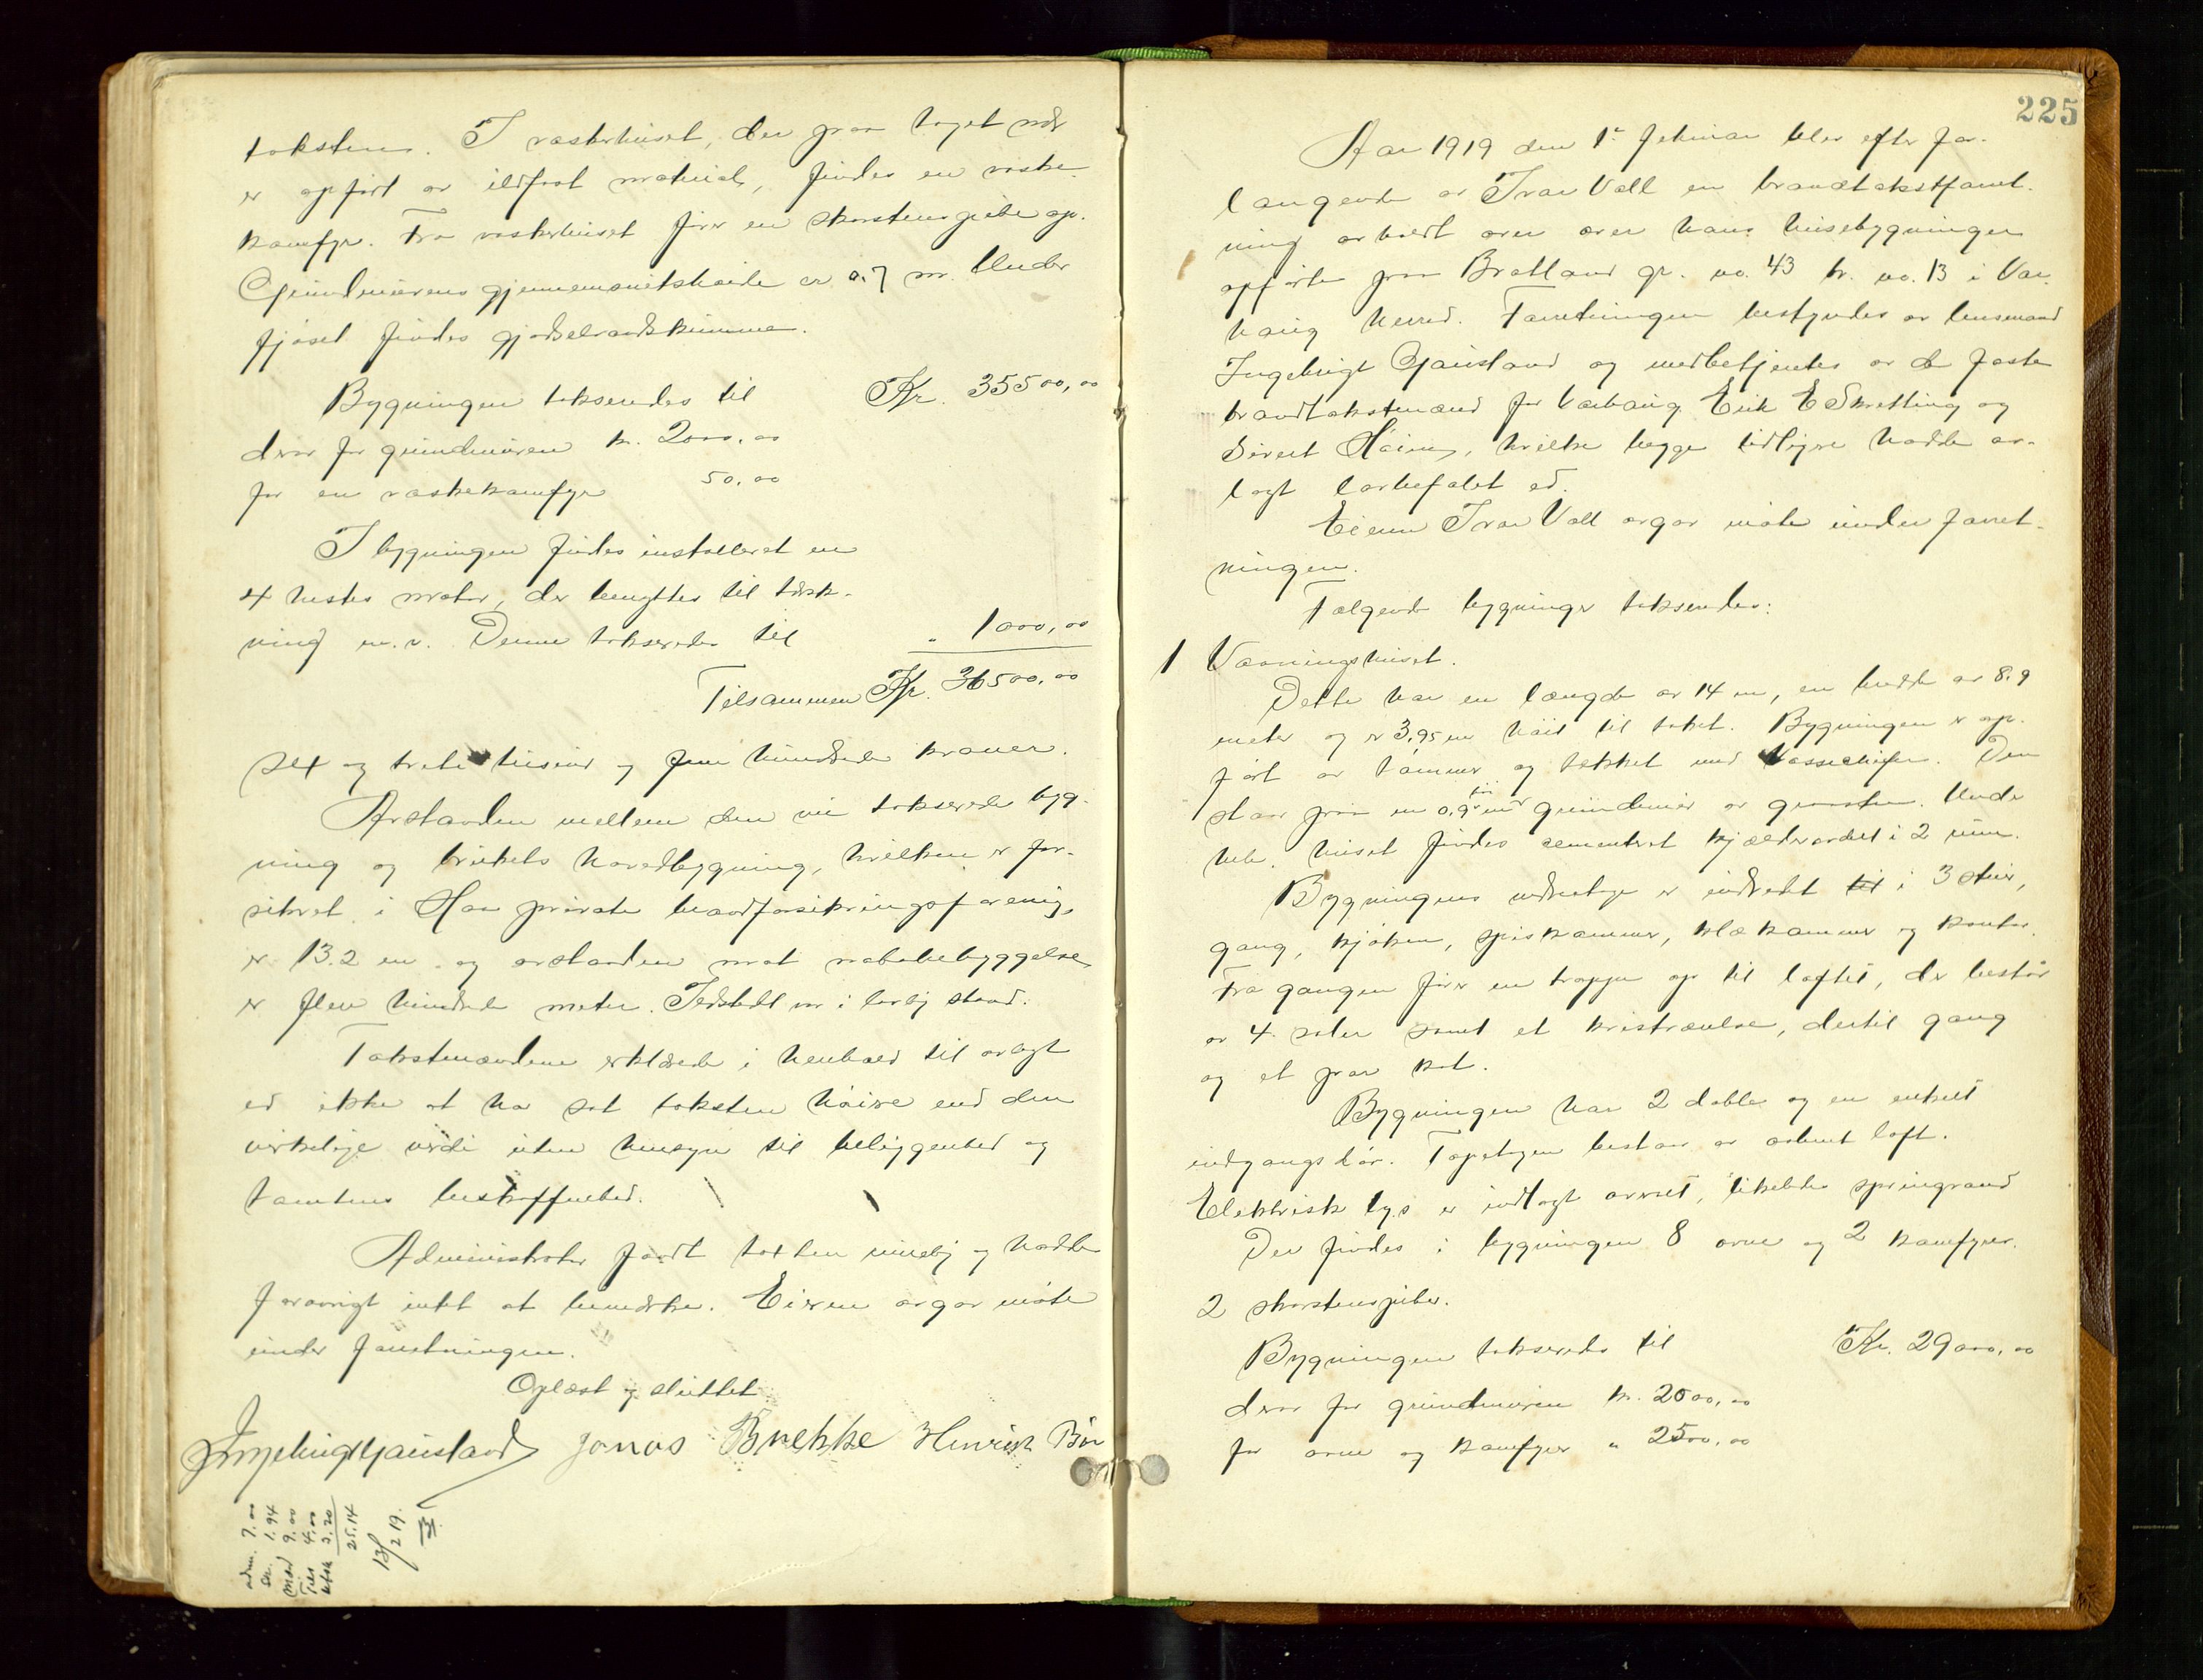 taksten. I vaskehuset, der paa taget nær
er opført av ildfast materiale, findes en vaske-
kamfyr. Fra vaskehuset fører en skorstenspibe op.
Grundmurens gjennemsnitshøide er 0.7 m. Under
fjøset findes gjødselvandskumme.
Bygningen takseredes til Kr. 35500,00
derav for grundmuren kr. 2000,00
for en vaskekamfyr 50,00
I bygningen findes installeret en
4 hestes motor, der benyttes til tærsk-
ning m.v. Denne takseredes til " 1000,00
Tilsammen Kr. 36500,00
sex og treti tusind og fem hundrede kroner.
Avstanden mellem den nu takserede byg-
ning og brukets hovedbygning, hvilken er for-
sikret i Haa private brandforsikringsforening,
er 13.2 m. og avstanden mot nabobebyggelse
er flere hundrede meter. Ildstedet var i lovlig stand.
Takstmændene erklærede i henhold til avlagt
ed ikke at ha sat taksten høiere end den
virkelige værdi uten hensyn til beliggenhed og
tomtens beskaffenhed.
Administrator fandt taxten rimelig og hadde
forøvrigt intet at bemerke. Eieren avgav møte
under forretningen.
Oplæst og sluttet
Ingebrigt Gausland Jonas Brekke Henrik Bø
adm. 7.00
sk. 1.94
mæd 9.00
Tils 4.00
utsk 3.20
25.14
13/2 19.
225
Aar 1919 den 1ste februar blev efter for-
langende av Ivar Vall en brandtakstforret-
ning avholdt over over hans husebygninger
opførte paa Bratland gr. no. 43 br. no. 13 i Var-
haug herred. Forretningen bestyredes av lensmand
Ingebrigt Gausland og medbetjentes av de faste
brandtakstmænd for Varhaug Erik E Skretting og
Sivert Haim, hvilke begge tidligere hadde av-
lagt lovbefalet ed.
Eieren Ivar Vall avgav møte under forret-
ningen.
Følgende bygninger takseredes:
1 Vaaningshuset.
Dette har en længde av 14 m, en bredde av 8.9
meter og er 3,95 m høit til taket. Bygningen er op-
ført av tømmer og tækket med Vosseskifer. Den
staar paa en 0.9 m høi grundmur av graasten. Under
hele huset findes cementeret kjælder avdelt i 2 rum.
Bygningens underetage er indredet til i 3 stuer,
gang, kjøken, spiskammer, klækammer og kontor.
Fra gangen fører en trappe op til loftet, der bestaar
av 4 saler samt et kvistværelse, dertil gang
og et par kot.
Bygningen har 2 doble og en enkelt
indgangsdør. Topetagen bestaar av aabent loft.
Elektrisk lys er indlagt overalt, likeledes springvand
Der findes i bygningen 8 ovne og 2 kamfyrer.
2 skorstenspiber.
Bygningen takseredes til Kr. 29000,00
derav for grundmuren kr. 2000,00
for ovne og kamfyrer " 2500,00